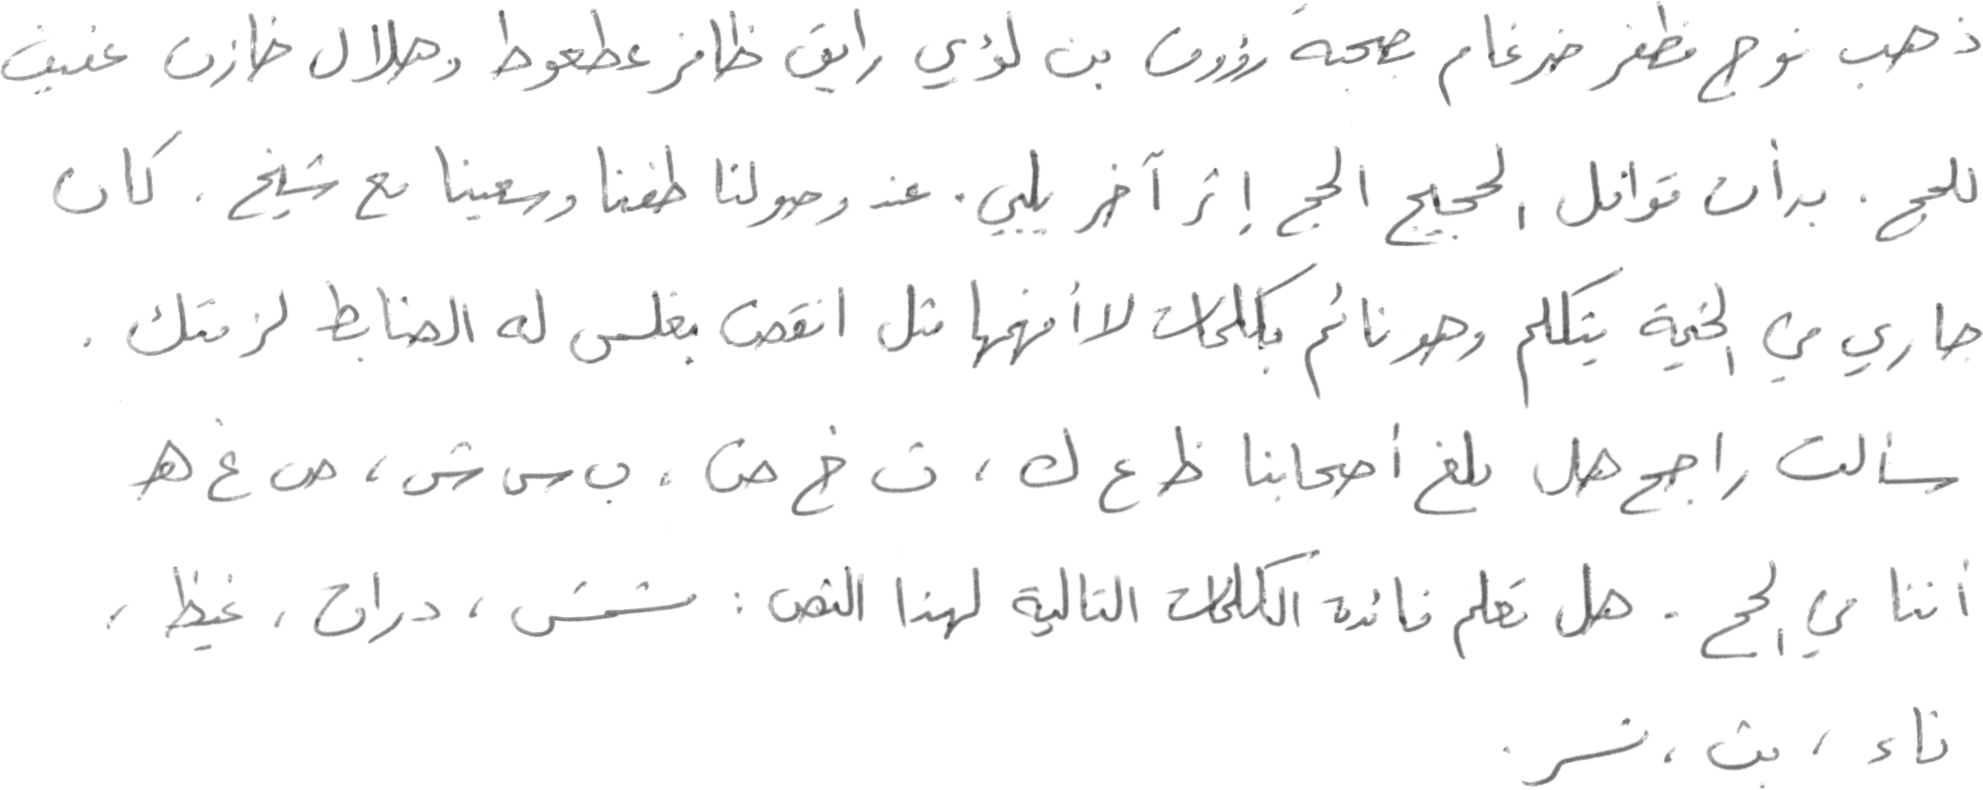 ذهب نوح مظفر ضرغام بصحبة رؤوف بن لؤي رايق ظافر عطعوط وهلال خازن عفيف
للحج . بدأت قوافل الحجيج الحج إثر آخر يلبي . عند وصولنا طفنا وسعينا مع شيخ . كان
جاري في الخيمة يتكلم وهو نائم بكلمات لا أفهمها مثل انقض بغلس له الضابط لزمتك .
سألت راجح هل بلغ أصحابنا ظ ع ك ، ث خ ض ، ب س ش ، ص غ هـ
أننا في الحج . هل تعلم فائدة الكلمات التالية لهذا النص : شمش ، دراق ، غيظ ،
ناء ، بث ، نسر .